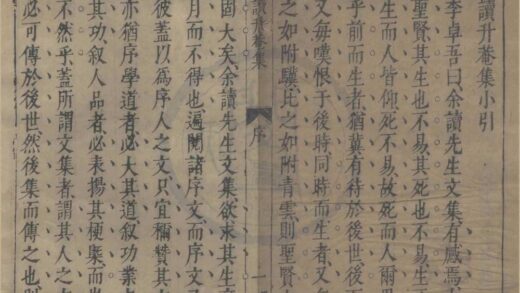 讀升菴集小引
李卓吾曰余讀先生文集有感焉
聖賢其生也不易其死也不易生
生而人皆仰死不易故死而人爾思
乎前而生者猶冀有待於後世後
又每嘆恨于後時同時而生者又
之如附驥比之如附青雲則聖賢
讀升菴集
序
一
固大矣余讀先生文集欲求其生
月而不得也遍閱諸序文而序文
彼蓋以爲序人之文只宜稱贊其
亦猶序學道者必大其道叙功業
其功叙人品者必表揚其梗槩而
不然乎蓋所謂文集者謂其人之
必可傳於後世然後集而傳之也則